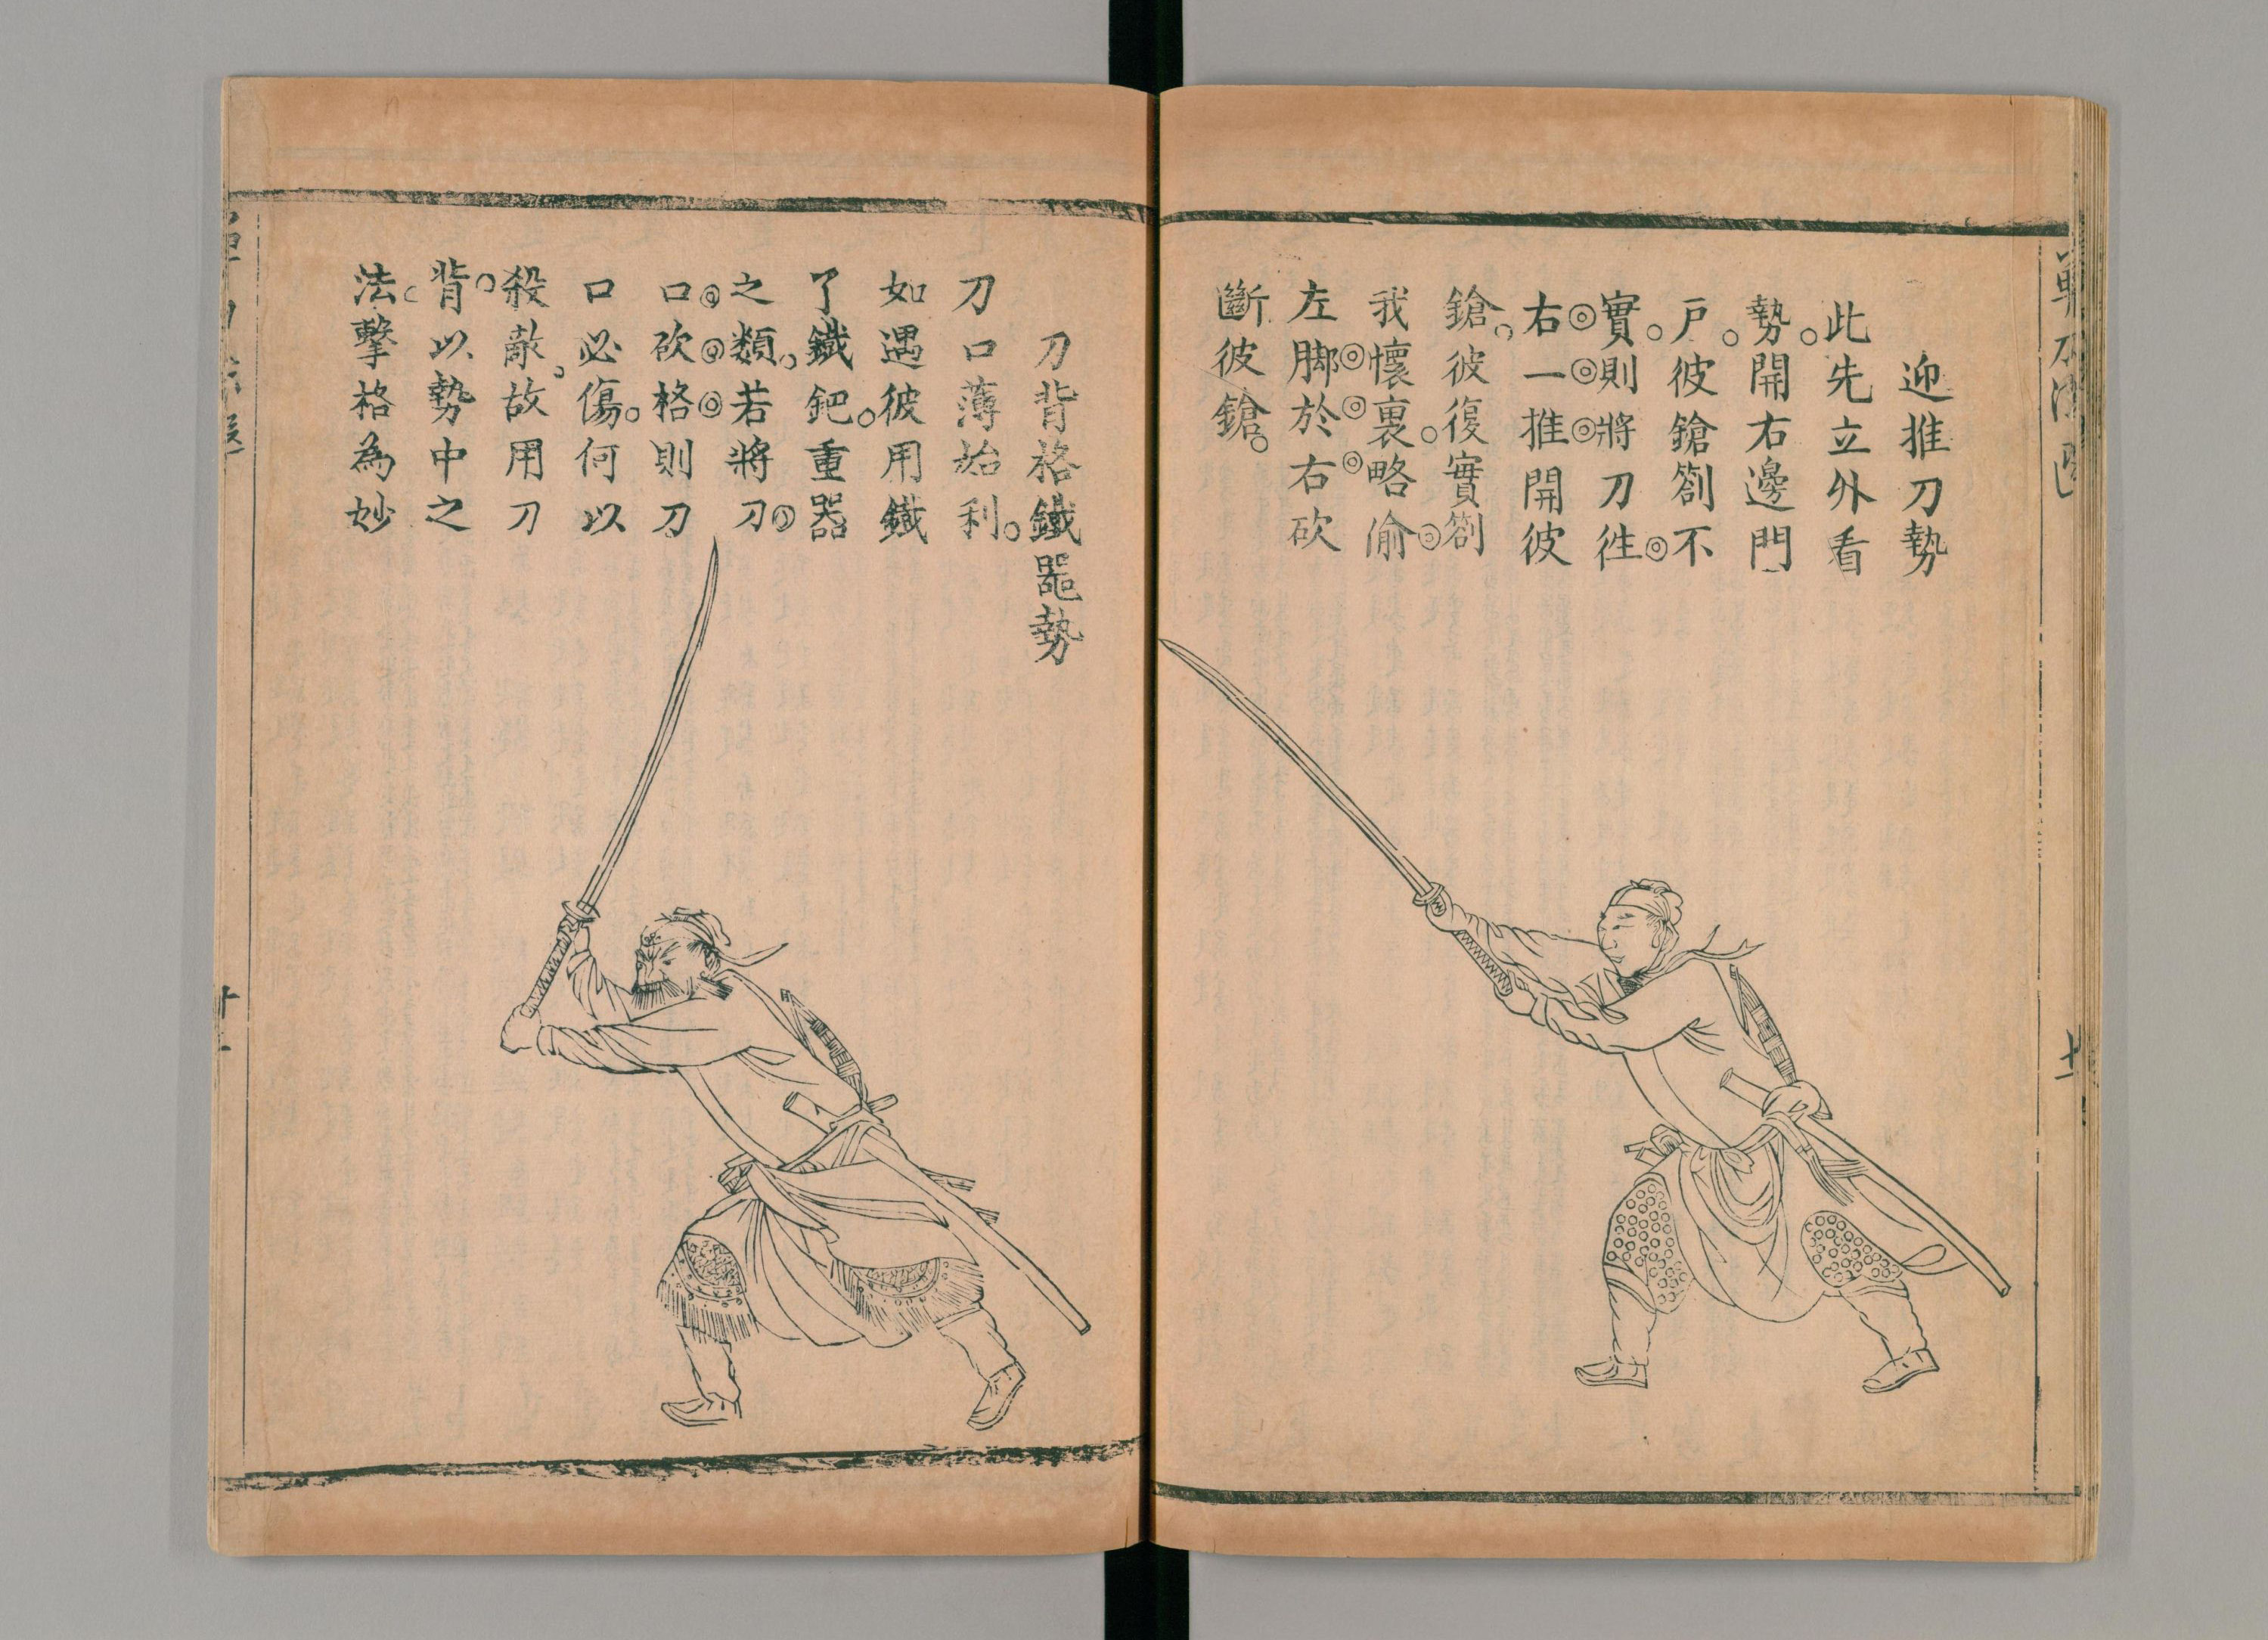 迎推刀勢
此先立外看
勢。開右邊門
戶。彼鎗劄不
實。則將刀徃
右一推開彼
鎗。彼復實劄
我懷裏。略偷
左脚於右砍
斷彼鎗。
刀背格鐵器勢
刀口薄始利。
如遇彼用鐵
了鐵鈀。重器
之類。若將刀
口砍格則刀
口必傷。何以
殺敵。故用刀
背。以勢中之
法。擊格為妙